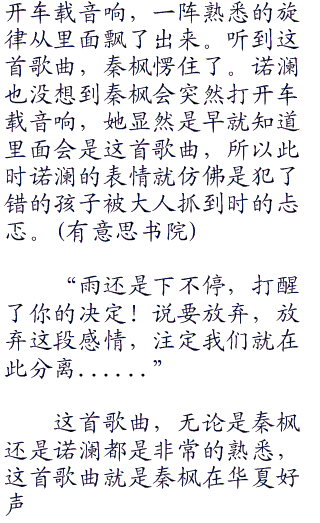 开车载音响，一阵熟悉的旋
律从里面飘了出来。听到这
首歌曲，秦枫愣住了。诺澜
也没想到秦枫会突然打开车
载音响，她显然是早就知道
里面会是这首歌曲，所以此
时诺澜的表情就仿佛是犯了
错的孩子被大人抓到时的忐
忑。(有意思书院)
“雨还是下不停，打醒
了你的决定！说要放弃，放
弃这段感情，注定我们就在
此分离......”
这首歌曲，无论是秦枫
还是诺澜都是非常的熟悉，
这首歌曲就是秦枫在华夏好
声